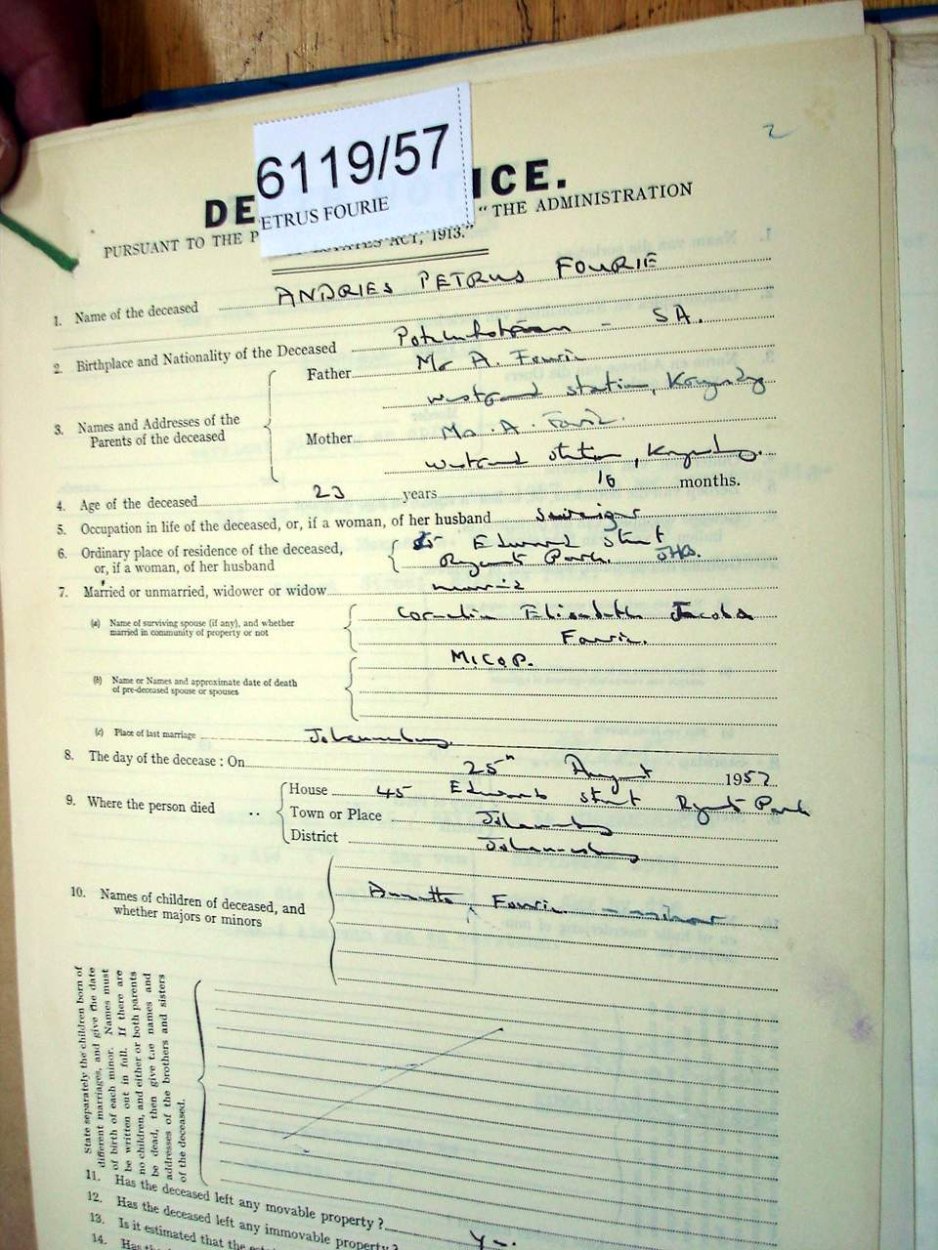 2
6119/57
ETRUS FOURIE
DE ICE.
PURSUANT TO THE P "THE ADMINISTRATION
ESTATES ACT, 1913."
1. Name of the deceased ANDRIES PETRUS FOURIE
2. Birthplace and Nationality of the Deceased Potchefstroom - SA.
3. Names and Addresses of the Parents of the deceased
Father Mr A. Fourie
station,
Mother Mrs. A. Fourie.
station,
4. Age of the deceased 23 years 10 months.
5. Occupation in life of the deceased, or, if a woman, of her husband
6. Ordinary place of residence of the deceased, or, if a woman, of her husband
Edward street
Regents Park. JHB.
7. Married or unmarried, widower or widow married
(a) Name of surviving spouse (if any), and whether married in community of property or not
Cornelia Elizabeth Jacoba
Fourie.
MICOP.
(b) Name or Names and approximate date of death of pre-deceased spouse or spouses
(c) Place of last marriage Johannesburg.
8. The day of the decease : On 25th August 1957
9. Where the person died ..
House 45 Edward street Regents Park
Town or Place Johannesburg
District Johannesburg
10. Names of children of deceased, and whether majors or minors
Fourie - minor
State separately the children born of
different marriages, and give the date
of birth of each minor. Names must
be written out in full. If there are
no children, and either or both parents
be dead, then give the names and
addresses of the brothers and sisters
of the deceased.
11. Has the deceased left any movable property ?
12. Has the deceased left any immovable property ? Yes.
13. Is it estimated that the
14. Has